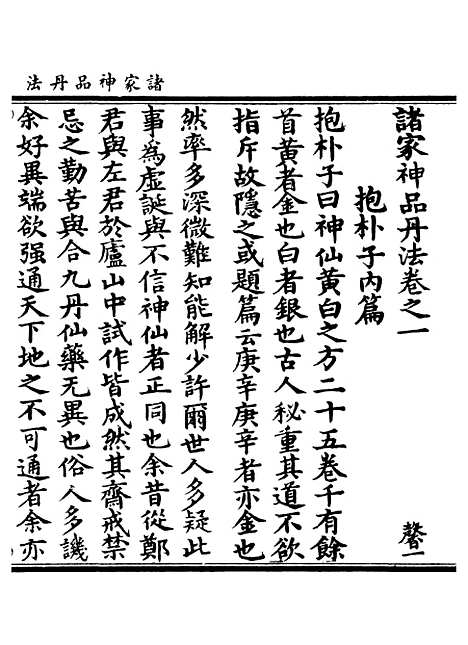 諸家神品丹法
諸家神品丹法卷之一
馨一
抱朴子內篇
抱朴子曰神仙黃白之方二十五卷千有餘
首黃者金也白者銀也古人秘重其道不欲
指斥故隱之或題篇云庚辛庚辛者亦金也
然率多深微難知能解少許爾世人多疑此
事為虛誕與不信神仙者正同也余昔從鄭
君與左君於廬山中試作皆成然其齋戒禁
忌之勤苦與合九丹仙藥无異也俗人多譏
余好異端欲强通天下地之不可通者余亦